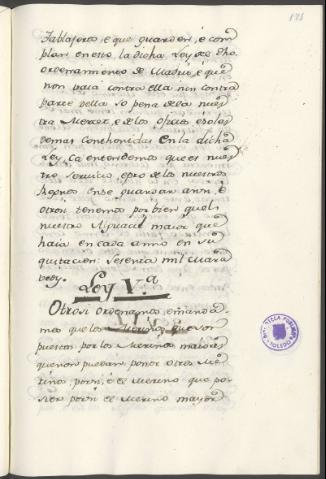 175
Tablageros, e que guarden, é cum
plan en esto, la dicha Ley de dho
ordenamiento de Madrid, é que
non vaia contra ella nin contra
parte della so pena de la nues
tra Merced, é de los oficios é de las
demas contenidas en la dicha
Ley, Ca entendemos que es nues
tro servicio, é pro de los nuestros
Regnos en se guardar anri, é
otrosi tenemos por bien quel
nuestro Alguacil maior que
haia en cada anno en su
quitacion: sesenta mil mara
vedy.
Ley V.ª
Otrosi ordenamos, é manda
mos que los Merinos que son
puestos por los Merinos maiores
que non puedan poner otros Me
rinos por si, é el Merino que pu
sier por si el Merino mayor
BIBLIOTECA PUBLICA
TOLEDO